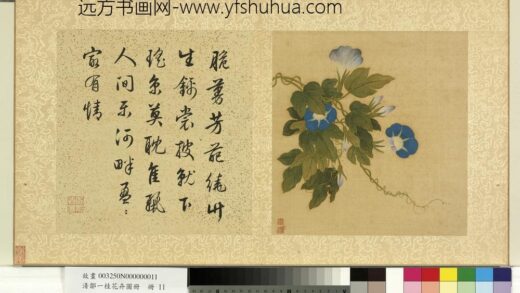 远方书画网-www.yfshuhua.com
脆蔓芳葩繞竹
生裳披就下
京莫耽
人間河畔盈〻
家有情
故畫 003250N000000011
清鄒一桂花卉圖冊 冊 11